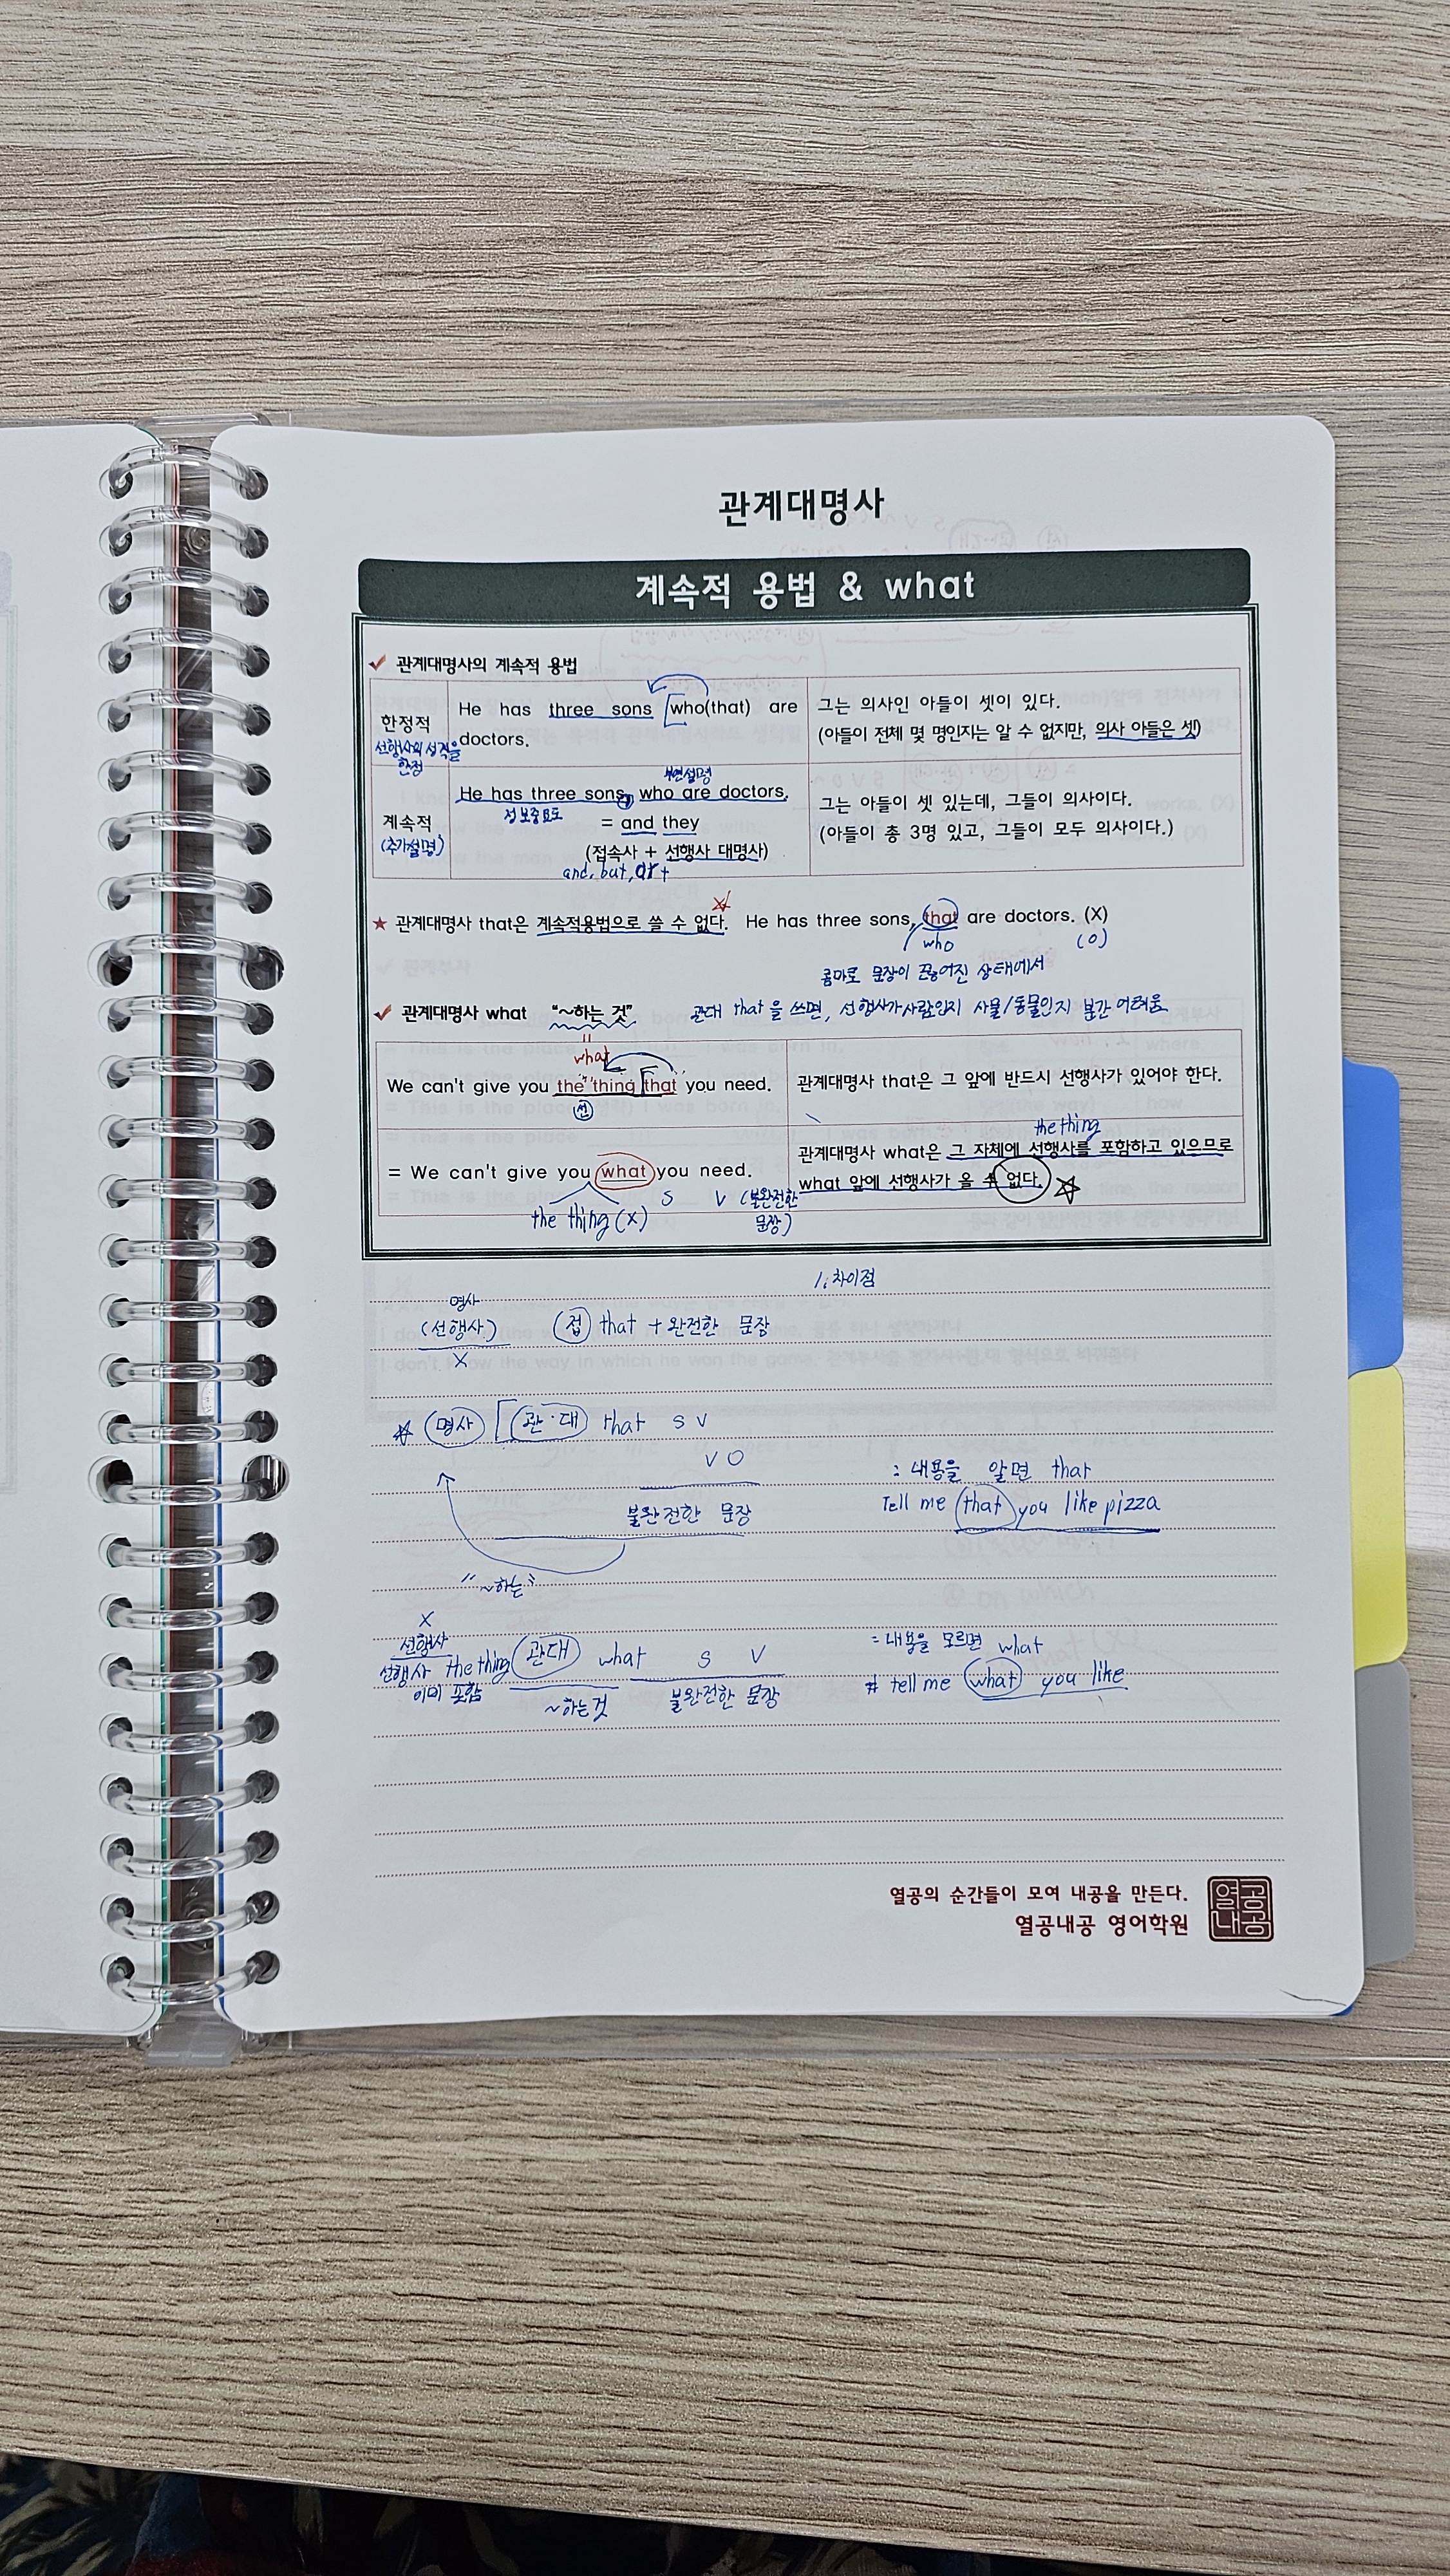 관계대명사
계속적 용법 & what
관계대명사의 계속적 용법
한정적
선행사의 성격을
한정
He has three sons who(that) are
doctors.
그는 의사인 아들이 셋이 있다.
(아들이 전체 몇 명인지는 알 수 없지만, 의사 아들은 셋)
계속적
(추가설명)
부연설명
He has three sons, who are doctors.
정보중요도
= and they
(접속사 + 선행사 대명사)
and, but, or +
그는 아들이 셋 있는데, 그들이 의사이다.
(아들이 총 3명 있고, 그들이 모두 의사이다.)
★ 관계대명사 that은 계속적용법으로 쓸 수 없다. He has three sons, that are doctors. (X)
who (O)
콤마로 문장이 끊어진 상태에서
관대 that을 쓰면, 선행사가 사람인지 사물/동물인지 분간 어려움
관계대명사 what "~하는 것"
what
We can't give you the thing that you need.
선
관계대명사 that은 그 앞에 반드시 선행사가 있어야 한다.
= We can't give you what you need.
the thing (X) S V (불완전한
문장)
the thing
관계대명사 what은 그 자체에 선행사를 포함하고 있으므로
what 앞에 선행사가 올 수 없다.
1. 차이점
명사
(선행사) 접 that + 완전한 문장
X
명사 관·대 that S V
V O
불완전한 문장
"~하는"
: 내용을 알면 that
Tell me that you like pizza
X
선행사
선행사 the thing 관대 what S V
이미 포함
~하는것 불완전한 문장
= 내용을 모르면 what
# tell me what you like
열공의 순간들이 모여 내공을 만든다.
열공내공 영어학원
열공
내공